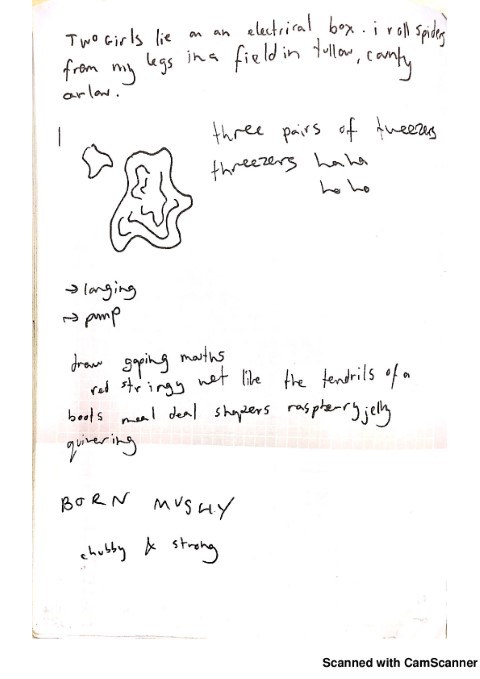 Two Girls lie on an electrical box. i roll spiders
from my legs in a field in tullow, county
arlow.
three pairs of tweezers
threezers haha
ho ho
→ longing
→ pump
draw gaping mouths
red stringy wet like the tendrils of a
boots meal deal shapers raspberry jelly
quivering
BORN MUSHY
chubby & strong
Scanned with CamScanner